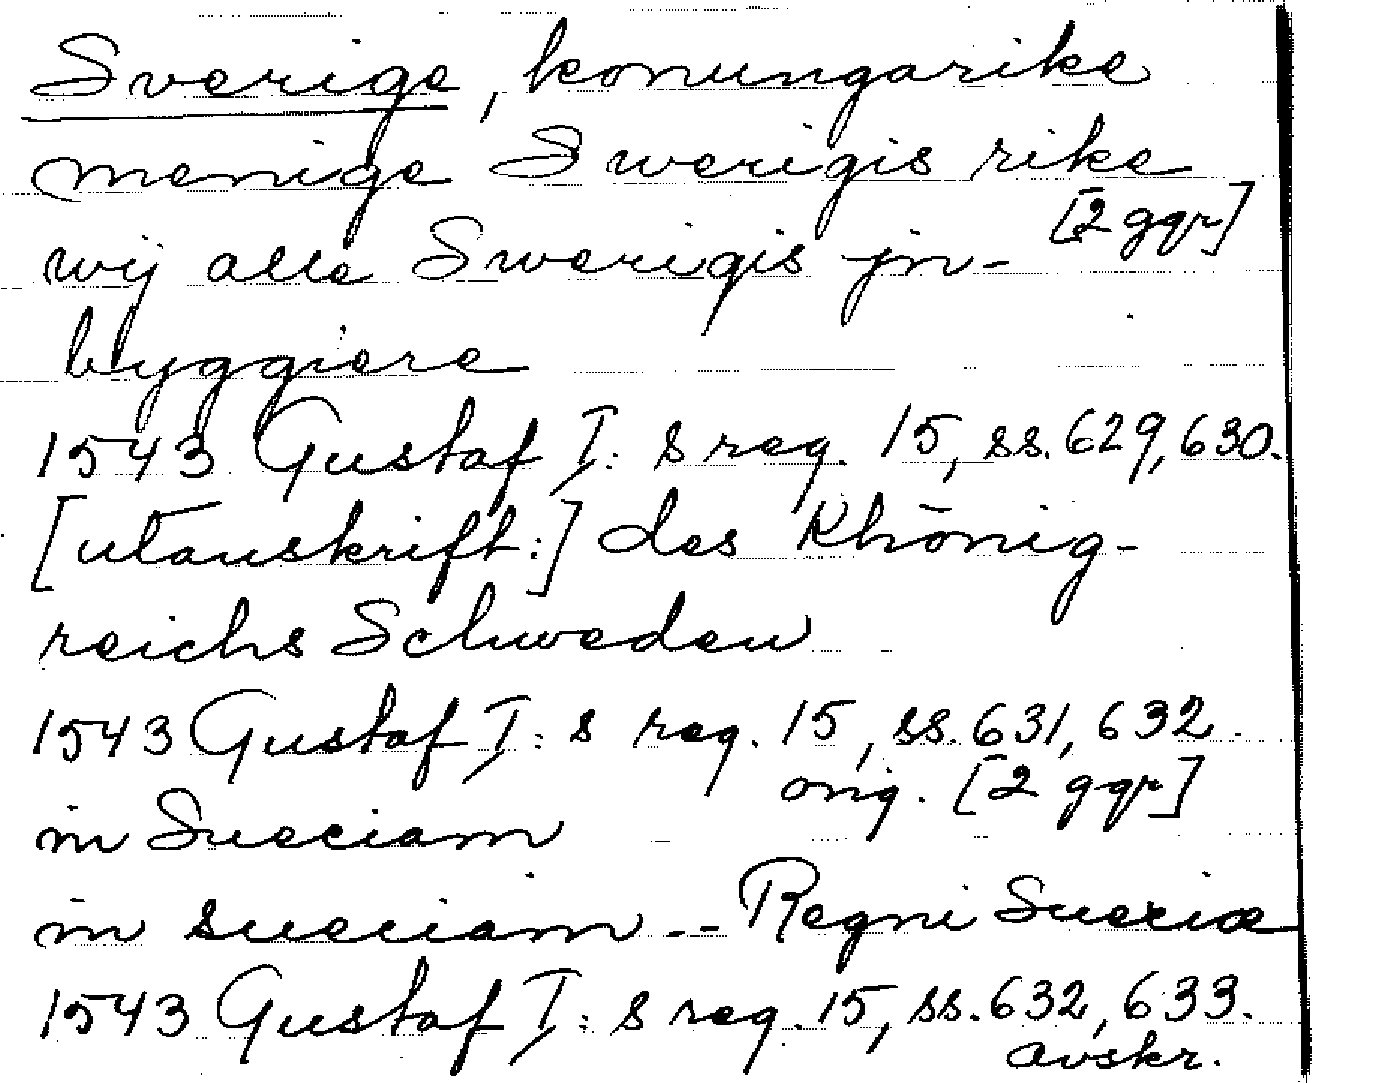 Sverige, konungarike
menige Swerigis rike
[2 ggr]
wij alle Swerigis jn-
byggiere
1543 Gustaf I:s reg. 15, ss. 629, 630.
[utanskrift:] des Khönig-
reichs Schweden
1543 Gustaf I:s reg. 15, ss. 631, 632.
orig. [2 ggr]
in Sueciam
in sueciam -- Regni Sueciæ
1543 Gustaf I:s reg. 15, ss. 632, 633.
avskr.